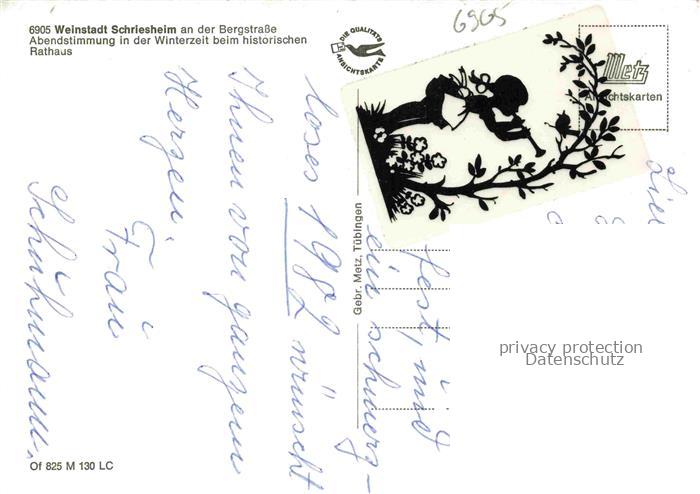 6905 Weinstadt Schriesheim an der Bergstraße
Abendstimmung in der Winterzeit beim historischen
Rathaus
DIE QUALITÄTS
ANSICHTSKARTE
6905
Metz
Ansichtskarten
Gebr. Metz, Tübingen
privacy protection
Datenschutz
fest, und
ein schmerz-
loses 1982 wünscht
Ihnen von ganzem
Herzen.
Frau
Schühmann.
Of 825 M 130 LC